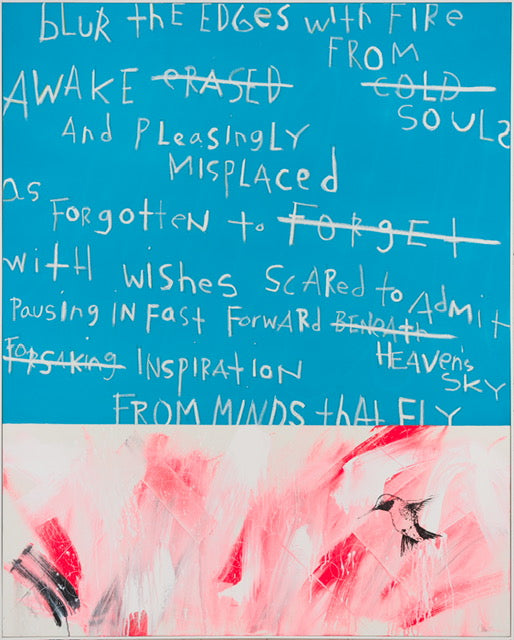 bLUR thE EDGES with FIRE
FROM
AWAKE eRASED COLD
SOULS
And PLeasingLY
MISPLACED
as
FORgotteN to FORgEt
with wishes SCARed to Admit
Pausing IN Fast ForwARd BENeAth
FORSAKing INSPIRAtioN HEAVen's
SKY
FROM MINDS thAt FLY